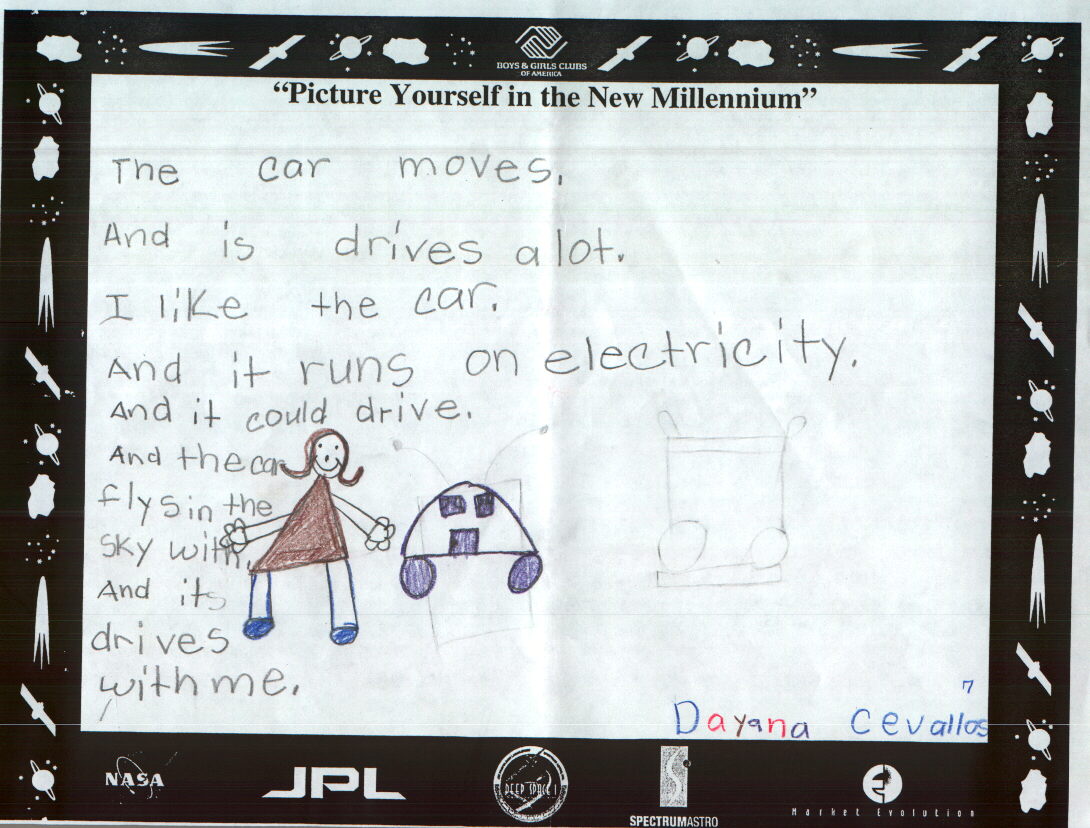 BOYS & GIRLS CLUBS
OF AMERICA
“Picture Yourself in the New Millennium”
The car moves.
And is drives a lot.
I like the car.
And it runs on electricity.
And it could drive.
And the car
flys in the
sky with.
And its
drives
with me.
7
Dayana Cevallos
NASA
JPL
DEEP SPACE 1
SPECTRUMASTRO
Market Evolution